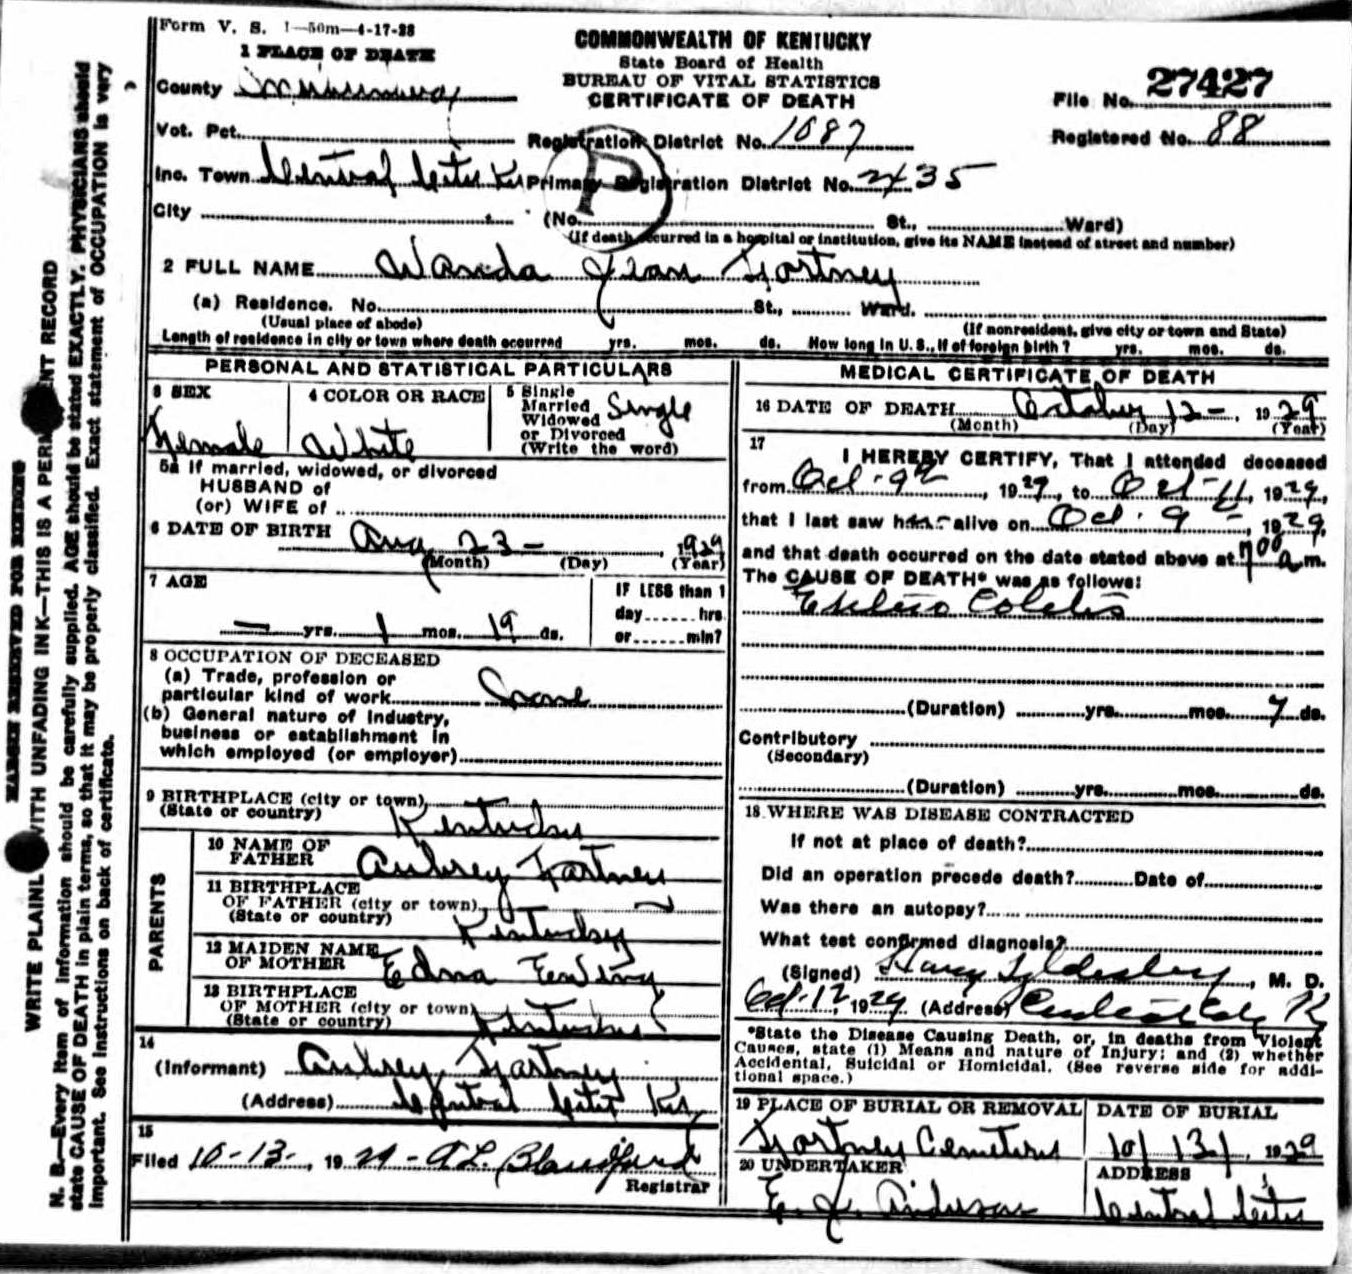 Form V. S. 1—50m—4-17-28
COMMONWEALTH OF KENTUCKY
State Board of Health
BUREAU OF VITAL STATISTICS
CERTIFICATE OF DEATH
1 PLACE OF DEATH
County
File No. 27427
Vot. Pct. Registration District No. 1087 Registered No. 88
Inc. Town Central City Ky Primary Registration District No. 2435
P
City (No. St., Ward)
(If death occurred in a hospital or institution, give its NAME instead of street and number)
2 FULL NAME Wanda Jean Fortney
(a) Residence. No. St., Ward.
(Usual place of abode) (If nonresident, give city or town and State)
Length of residence in city or town where death occurred yrs. mos. ds. How long in U. S., if of foreign birth? yrs. mos. ds.
PERSONAL AND STATISTICAL PARTICULARS
3 SEX Female
4 COLOR OR RACE White
5 Single
Married
Widowed
or Divorced
(Write the word)
Single
5a If married, widowed, or divorced
HUSBAND of
(or) WIFE of
6 DATE OF BIRTH Aug 23 - 1929
(Month) (Day) (Year)
7 AGE
— yrs. 1 mos. 19 ds.
IF LESS than 1
day hrs
or min?
8 OCCUPATION OF DECEASED
(a) Trade, profession or
particular kind of work None
(b) General nature of industry,
business or establishment in
which employed (or employer)
9 BIRTHPLACE (city or town)
(State or country) Kentucky
PARENTS
10 NAME OF
FATHER Aubrey Fortney
11 BIRTHPLACE
OF FATHER (city or town)
(State or country) Kentucky
12 MAIDEN NAME
OF MOTHER Edna
13 BIRTHPLACE
OF MOTHER (city or town)
(State or country) Kentucky
14
(Informant) Aubrey Fortney
(Address) Central City Ky
15
Filed 10-13-, 1929 - A L. Blandford
Registrar
MEDICAL CERTIFICATE OF DEATH
16 DATE OF DEATH October 12 -, 1929
(Month) (Day) (Year)
17
I HEREBY CERTIFY, That I attended deceased
from Oct. 9th, 1929, to Oct - 11, 1929,
that I last saw her alive on Oct. 9 -, 1929,
and that death occurred on the date stated above at 7 00 a.m.
The CAUSE OF DEATH* was as follows:
Entero Colitis
(Duration) yrs. mos. 7 ds.
Contributory
(Secondary)
(Duration) yrs. mos. ds.
18 WHERE WAS DISEASE CONTRACTED
If not at place of death?
Did an operation precede death? Date of
Was there an autopsy?
What test confirmed diagnosis?
(Signed) M. D.
Oct. 12, 1929 (Address) Central City Ky
*State the Disease Causing Death, or, in deaths from Violent
Causes, state (1) Means and nature of Injury; and (2) whether
Accidental, Suicidal or Homicidal. (See reverse side for addi-
tional space.)
19 PLACE OF BURIAL OR REMOVAL Fortney Cemetery
DATE OF BURIAL 10/13/, 1929
20 UNDERTAKER E. J. Anderson
ADDRESS Central City
MARGIN RESERVED FOR BINDING
WRITE PLAINLY WITH UNFADING INK—THIS IS A PERMANENT RECORD
N. B.—Every item of information should be carefully supplied. AGE should be stated EXACTLY. PHYSICIANS should
state CAUSE OF DEATH in plain terms, so that it may be properly classified. Exact statement of OCCUPATION is very
important. See instructions on back of certificate.